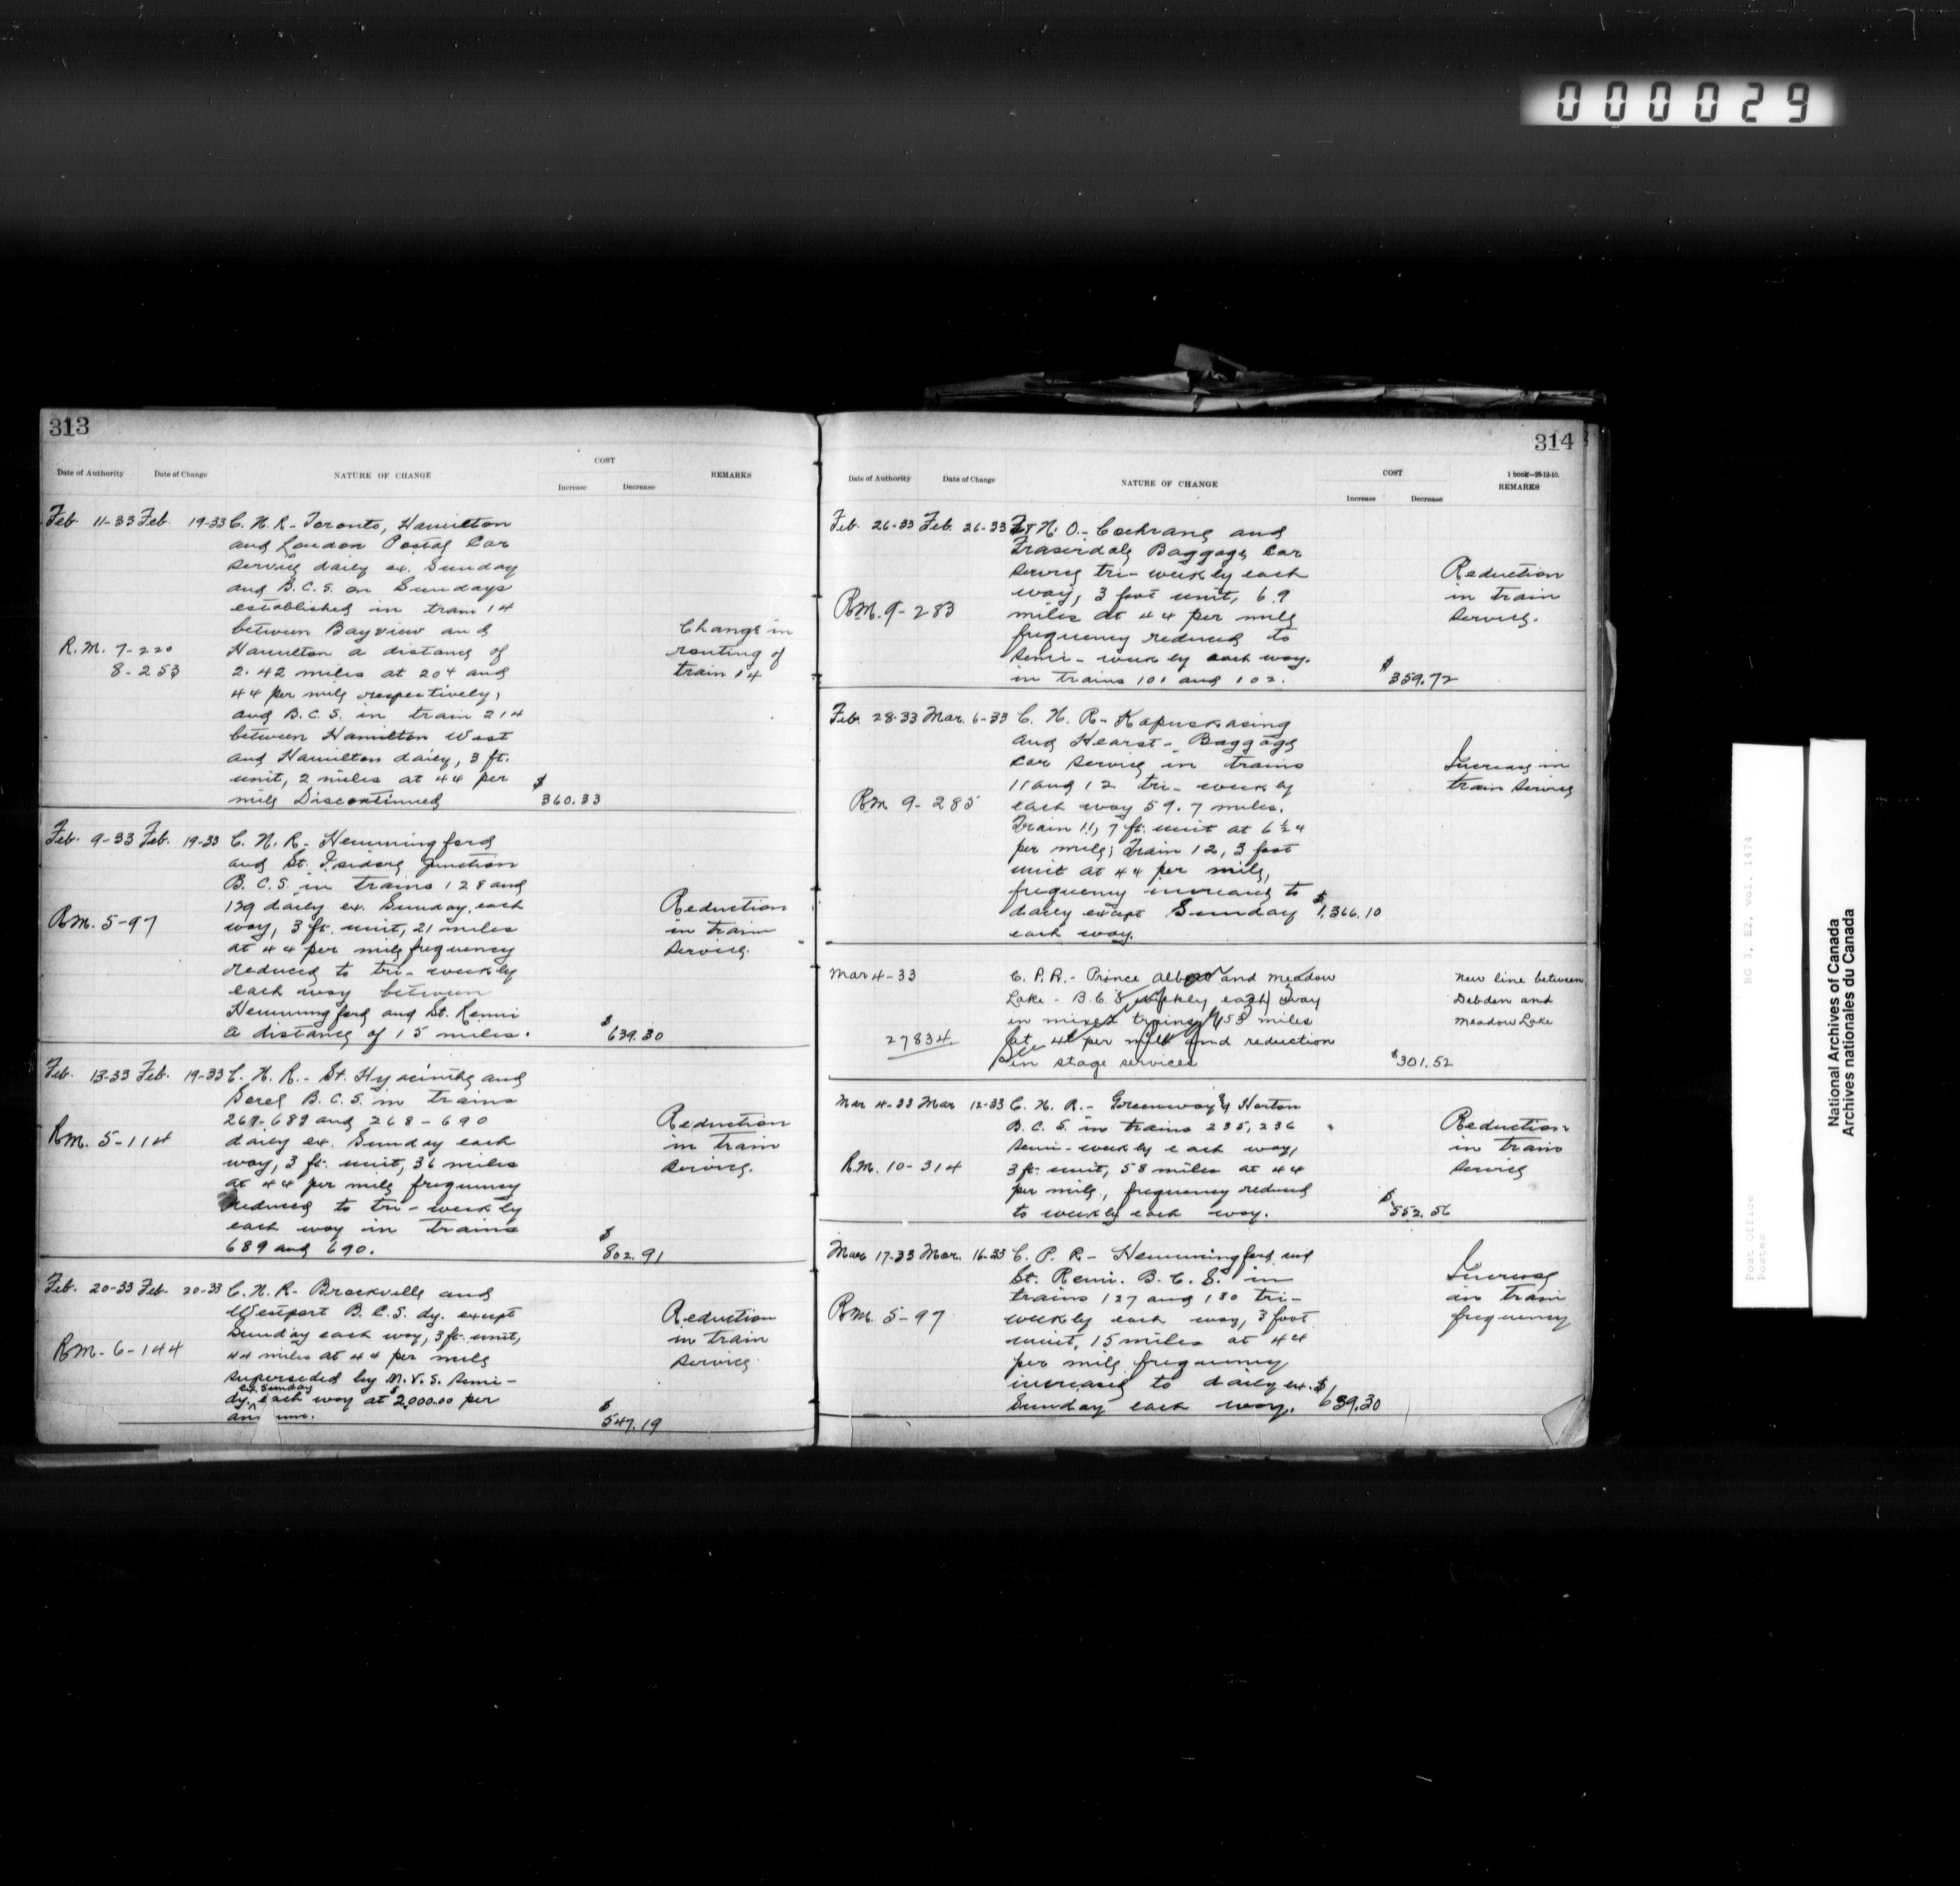 000029
313
Date of Authority Date of Change NATURE OF CHANGE COST REMARKS
Increase Decrease
Feb. 11-33 Feb. 19-33 C. N. R. - Toronto, Hamilton
and London Postal Car
service daily ex. Sunday
and B.C.S. on Sundays
established in train 14
between Bayview and
R.M. 7-220 Hamilton a distance of
8-253 2.42 miles at 20¢ and
4¢ per mile respectively,
and B.C.S. in train 214
between Hamilton West
and Hamilton daily, 3 ft.
unit, 2 miles at 4¢ per
mile Discontinued $360.33
Change in
routing of
train 14
Feb. 9-33 Feb. 19-33 C. N. R. - Hemmingford
and St. Isidore Junction
B.C.S. in trains 128 and
129 daily ex. Sunday, each
RM. 5-97 way, 3 ft. unit, 21 miles
at 4¢ per mile frequency
reduced to tri-weekly
each way between
Hemmingford and St. Remi
a distance of 15 miles. $639.30
Reduction
in train
service.
Feb. 13-33 Feb. 19-33 C. N. R. - St. Hyacinthe and
Sorel B.C.S. in trains
267-689 and 268-690
RM. 5-114 daily ex. Sunday each
way, 3 ft. unit, 36 miles
at 4¢ per mile frequency
reduced to tri-weekly
each way in trains
689 and 690. $802.91
Reduction
in train
service.
Feb. 20-33 Feb. 20-33 C. N. R. - Brockville and
Westport B.C.S. dy. except
Sunday each way, 3 ft. unit,
RM-6-144 44 miles at 4¢ per mile
superseded by M.V.S. semi-
ex. Sunday
dy. each way at $2,000.00 per
annum. $547.19
Reduction
in train
service.
314
1 book-28-12-10.
Date of Authority Date of Change NATURE OF CHANGE COST REMARKS
Increase Decrease
Feb. 26-33 Feb. 26-33 T & N. O. - Cochrane and
Fraserdale Baggage Car
service tri-weekly each
way, 3 foot unit, 69
RM. 9-283 miles at 4¢ per mile
frequency reduced to
semi-weekly each way.
in trains 101 and 102. $359.72
Reduction
in train
service.
Feb. 28-33 Mar. 6-33 C. N. R. - Kapuskasing
and Hearst - Baggage
Car service in trains
11 and 12 tri-weekly
RM 9-285 each way 59.7 miles.
Train 11, 7 ft. unit at 6½¢
per mile; train 12, 3 foot
unit at 4¢ per mile,
frequency increased to
daily except Sunday $1,366.10
each way.
Increase in
train service
Mar 4-33 C. P. R. - Prince Albert and Meadow
Lake - B.C.S. weekly each way
in mixed trains 153 miles
27834. at 4¢ per mile and reduction
in stage services $301.52
New line between
Debden and
Meadow Lake
Mar 4-33 Mar 12-33 C. N. R. - Greenway & Horton
B.C.S. in trains 235, 236
semi-weekly each way,
R.M. 10-314 3 ft. unit, 58 miles at 4¢
per mile, frequency reduced
to weekly each way. $552.56
Reduction
in train
service
Mar 17-33 Mar. 16-33 C. P. R - Hemmingford and
St. Remi. B.C.S. in
trains 127 and 130 tri-
RM. 5-97 weekly each way, 3 foot
unit, 15 miles at 4¢
per mile frequency
increased to daily ex.
Sunday each way. $639.30
Increase
in train
frequency
RG 3, E2, vol. 1474
Post Office
Postes
National Archives of Canada
Archives nationales du Canada